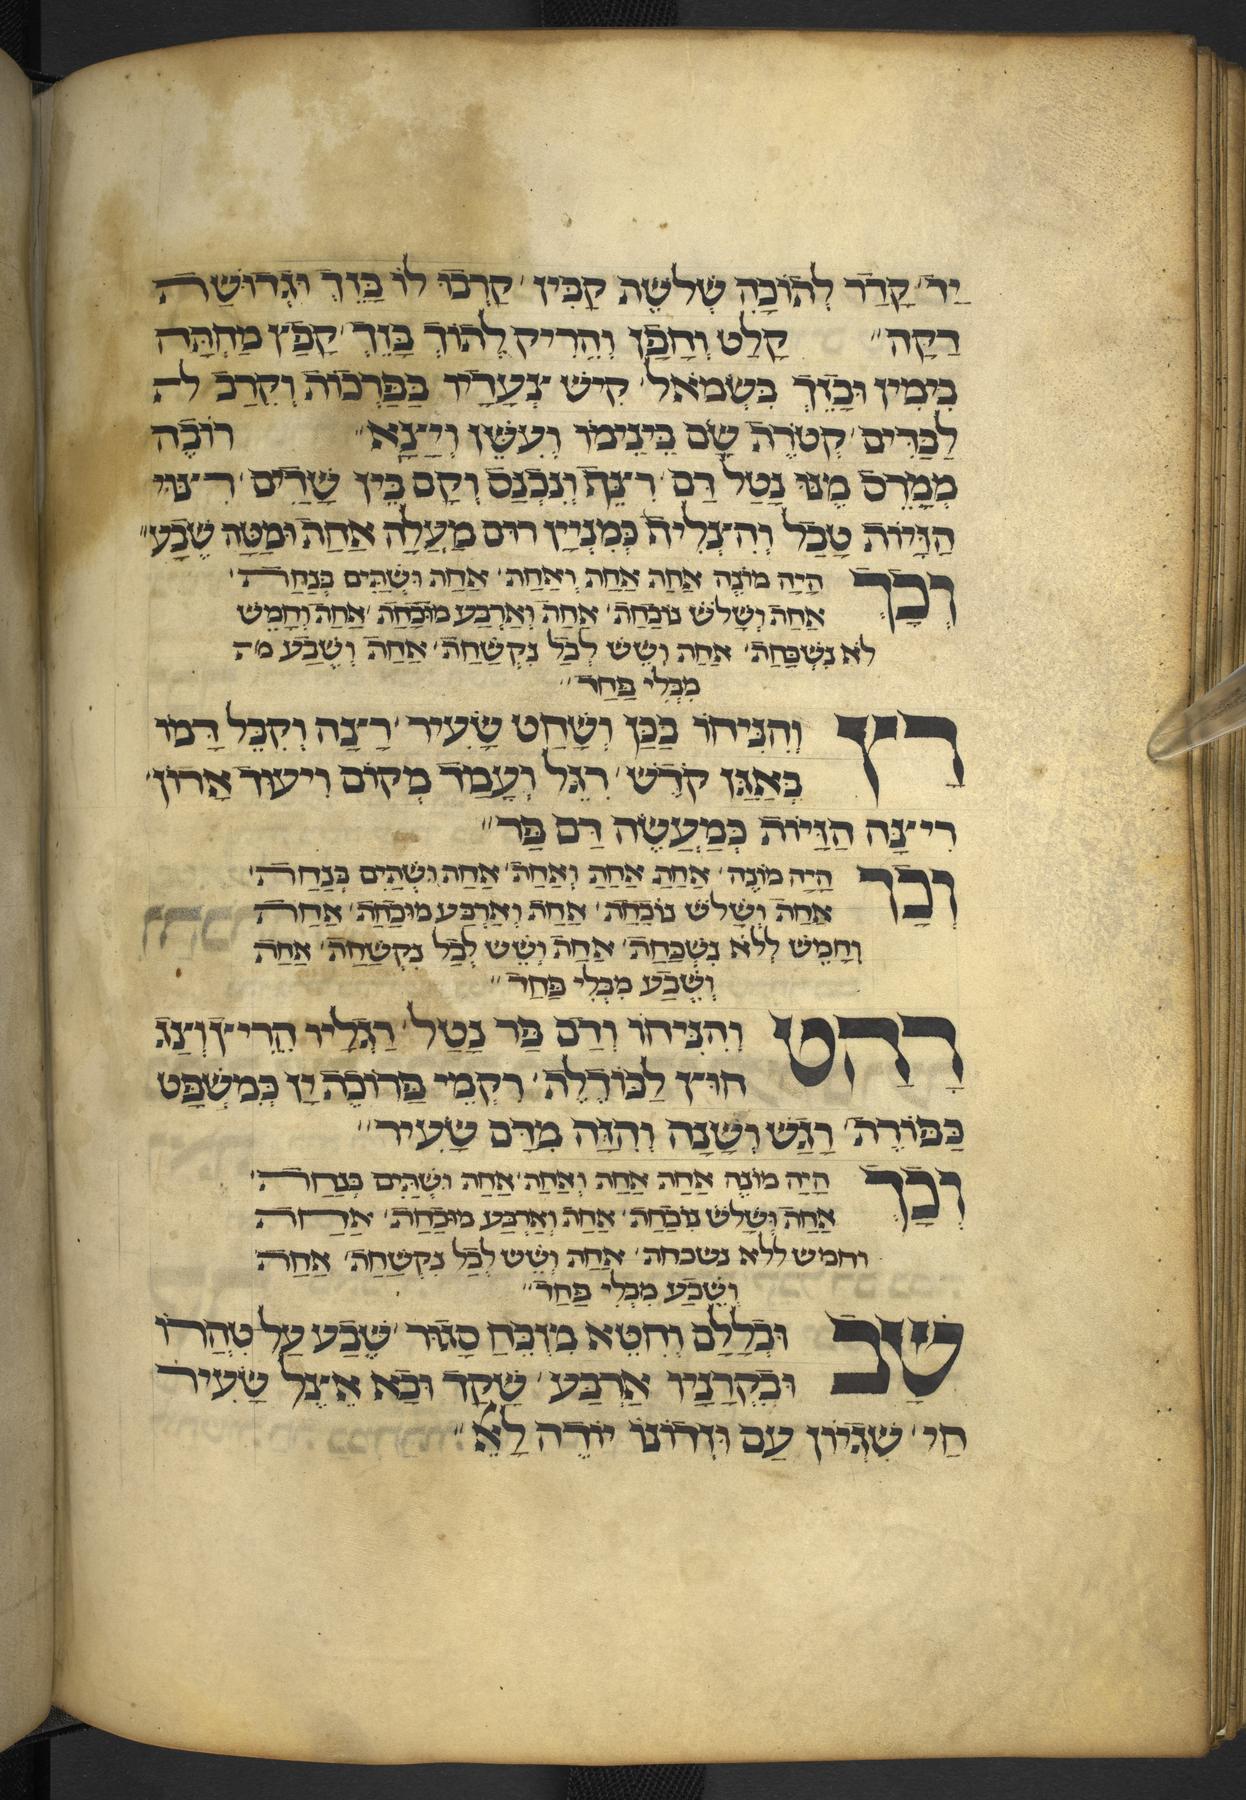 יַד׳ קָדַר לְתוֹכָהּ שְׁלֹשֶׁת קַבִּין׳ קֵרְבוּ לוֹ בָּזֵךְ וּגְדוּשָׁה
דַקָה״ קָלַט וְחָפַן וְהֵרִיק לְתוֹךְ בָּזֵךְ׳ קָפַץ מַחְתָּה
בְיָמִין וּבָזֵךְ בִּשְׂמֹאל׳ קִישׁ צְעָדָיו בַּפָּרֹכוֹת וְקֵרַב לה
לַבַּדִּים׳ קְטֹרֶת שָׂם בֵּינֵימוֹ וְעִשֵּׁן וְיָצָא״ רוֹכֶה
מְמָרֵס מֶנּוּ נָטַל דַּם׳ רִצֵּף וְנִכְנַס וְקָם בֵּין שָׁדַיִם׳ רצוּי
הַזָּיוֹת טָבַל וְהִצְלִיף כְּמִנְיָין רוּם מַעְלָה אַחַת וּמַטָּה שֶׁבַע״
וְכָךְ הָיָה מוֹנֶה אַחַת אַחַת וְאַחַת׳ אַחַת וּשְׁתַּיִם כְּנַחַת׳
אַחַת וְשָׁלֹשׁ נוֹכַחַת׳ אַחַת וְאַרְבַּע מוּכַּחַת׳ אַחַת וְחָמֵשׁ
לֹא נִשְׁכַּחַת׳ אַחַת וְשֵׁשׁ לְבַל נִקְשַׁחַת׳ אַחַת וְשֶׁבַע מה
מִבְּלִי פַּחַד״
רָץ וְהִנִּיחוֹ בַכַּן וְשָׁחַט שָׂעִיר׳ רָצָה וְקִבֵּל דָּמוֹ
בְּאַגַּן קֹדֶשׁ׳ רִגֵּל וְעָמַד מְקוֹם וִיעוּד אָרוֹן׳
רִיצָּה הַזָּיוֹת כְּמַעֲשֵׂה דַּם פַּר״
וְכָךְ הָיָה מוֹנֶה׳ אַחַת אַחַת וְאַחַת׳ אַחַת וּשְׁתַּיִם כְּנַחַת׳
אַחַת וְשָׁלֹשׁ נוֹכַחַת׳ אַחַת וְאַרְבַּע מוּכַּחַת׳ אַחַת
וְחָמֵשׁ לְלֹא נִשְׁכַּחַת׳ אַחַת וְשֵׁשׁ לְבַל נִקְשַׁחַת׳ אַחַת
וְשֶׁבַע מִבְּלִי פַּחַד״
רָהַט וְהִנִּיחוֹ וְדַם פַּר נָטַל׳ רַגְלָיו הֵרִיץ וְצָג
חוּץ לַכּוֹדֶלֶת׳ רִקְמֵי פָּרוֹכֶת יָן כְּמִשְׁפַּט
כַּפּוֹרֶת׳ רָגַשׁ וְשָׁנָה וְהִזָּה מִדַּם שָׂעִיר״
וְכָךְ הָיָה מוֹנֶה אַחַת אַחַת וְאַחַת׳ אַחַת וּשְׁתַּיִם כְּנַחַת׳
אַחַת וְשָׁלֹשׁ נוֹכַחַת׳ אַחַת וְאַרְבַּע מוּכַּחַת׳ אַחַת
וחמש ללא נשכחת׳ אַחַת וְשֵׁשׁ לְבַל נִקְשַׁחַת׳ אַחַת
וְשֶׁבַע מִבְּלִי פַּחַד״
שָׁב וּבְלָלָם וְחִטֵּא מִזְבֵּחַ סָגוּר׳ שֶׁבַע עַל טָהֳרוֹ
וּבְקַרְנָיו אַרְבַּע׳ שָׁקַד וּבָא אֵצֶל שָׂעִיר
חַי׳ שִׁגְיוֹן עַם וּזְדוֹנוֹ יוֹדֶה לָאֵל״